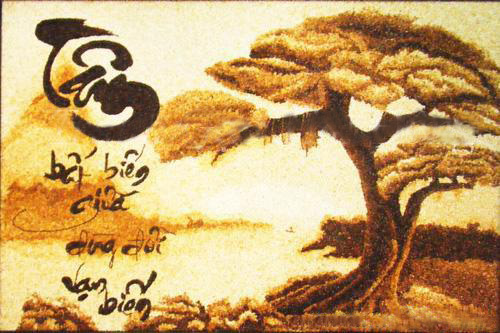 Tâm
bất biến
giữa
dòng đời
vạn biến